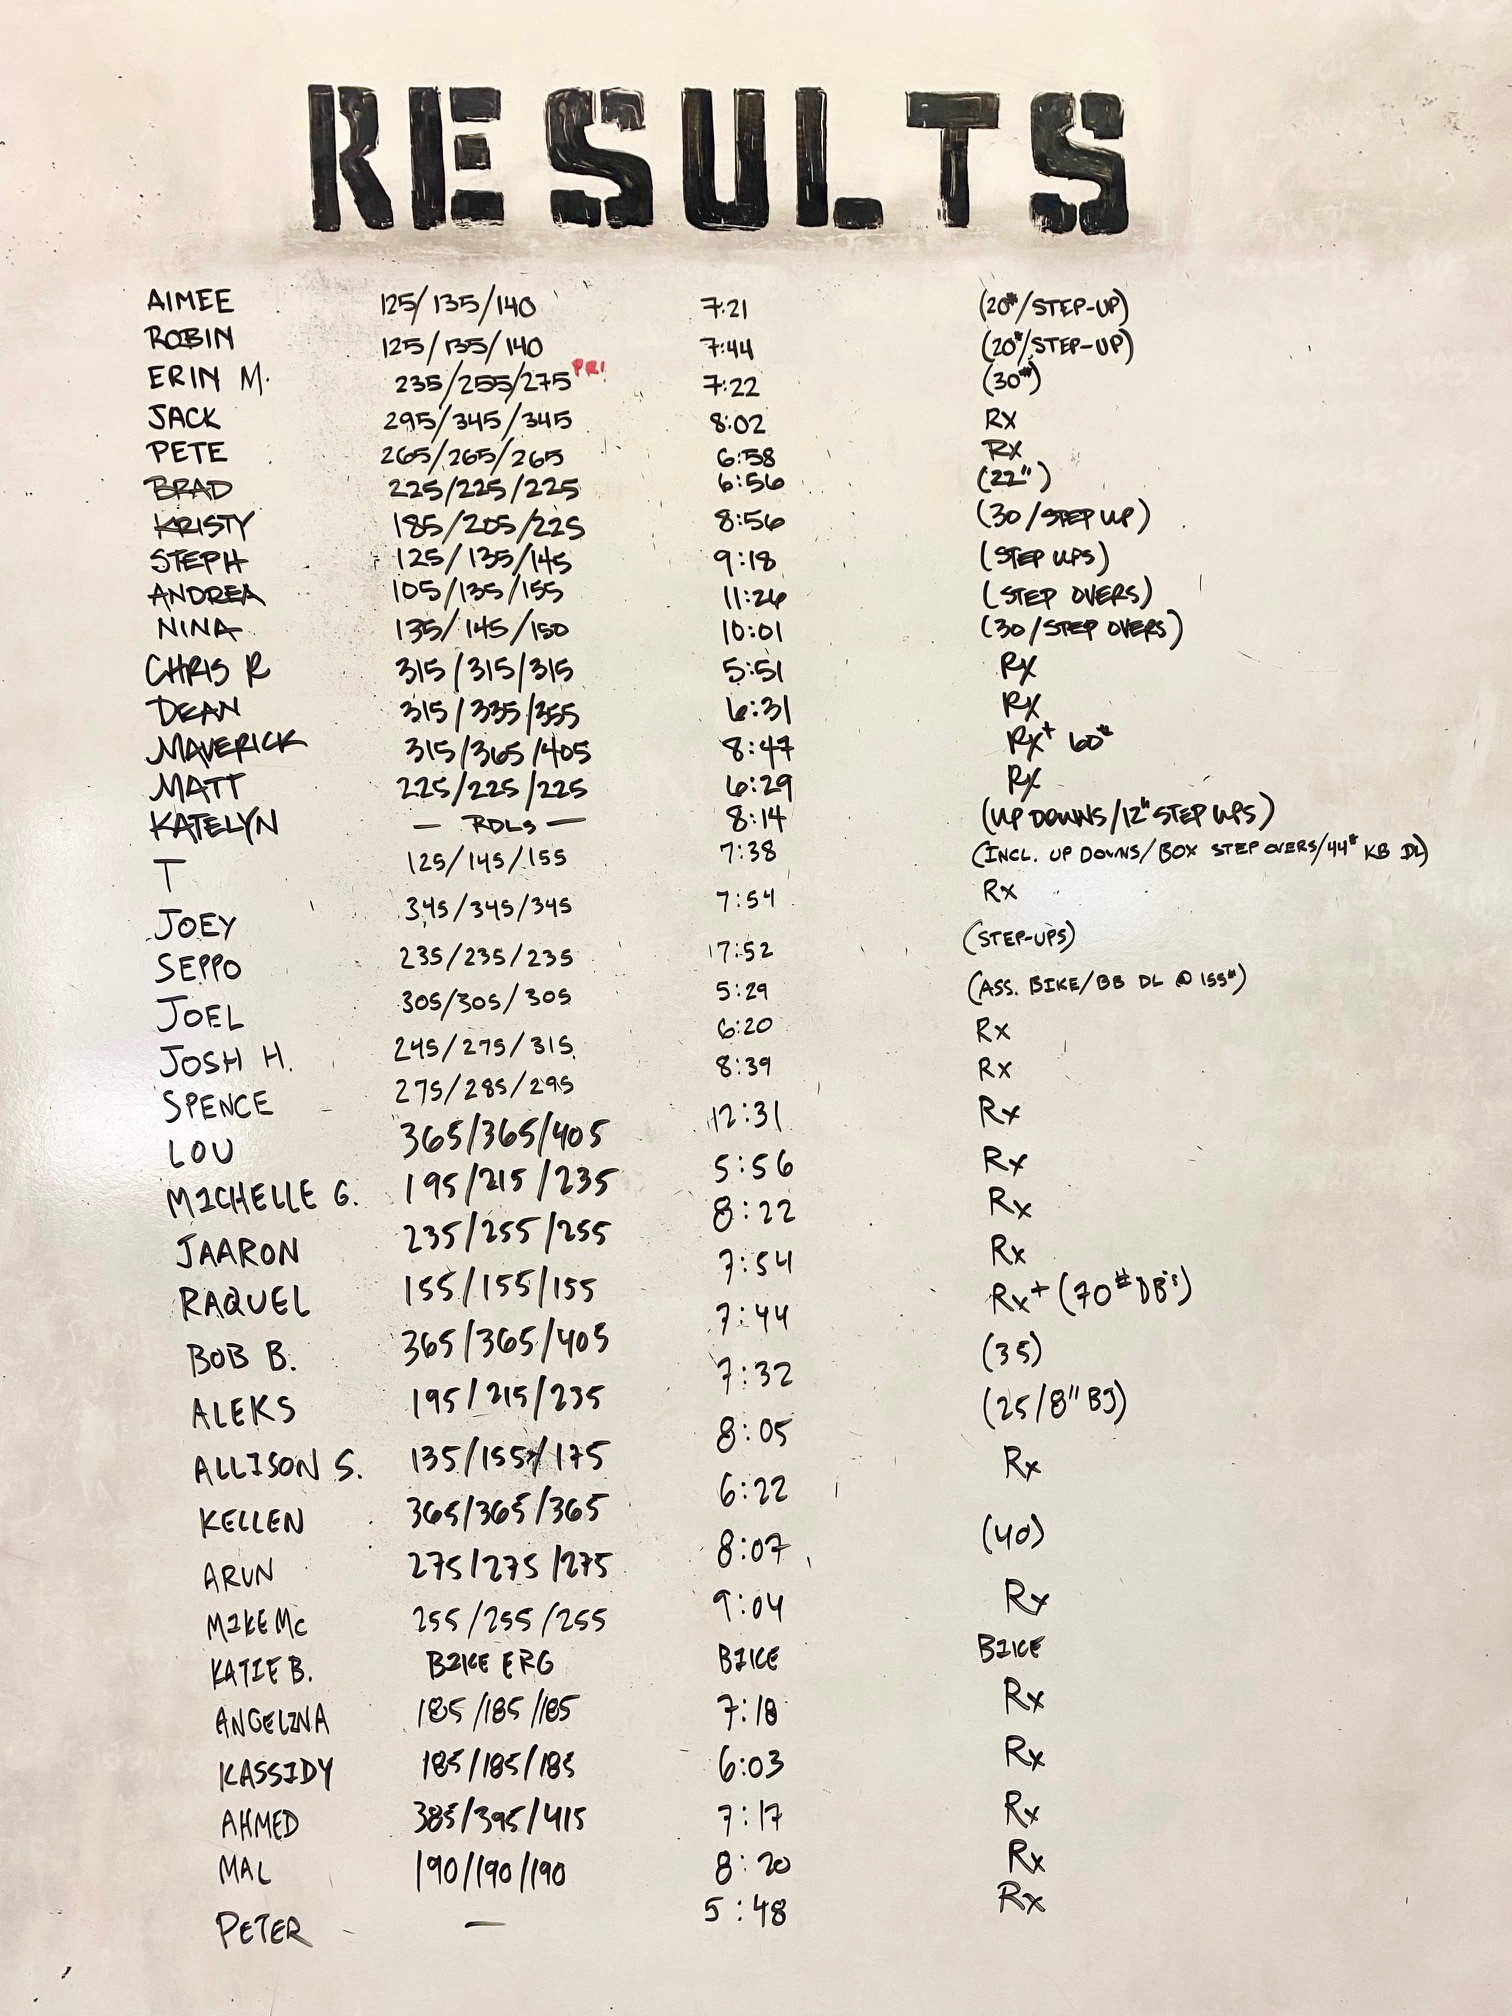 RESULTS
AIMEE 125/135/140 7:21 (20#/STEP-UP)
ROBIN 125/135/140 7:44 (20#/STEP-UP)
ERIN M. 235/255/275 PR! 7:22 (30#)
JACK 295/345/345 8:02 RX
PETE 265/265/265 6:58 RX
BRAD 225/225/225 6:56 (22")
KRISTY 185/205/225 8:56 (30/STEP UP)
STEPH 125/135/145 9:18 (STEP UPS)
ANDREA 105/135/155 11:26 (STEP OVERS)
NINA 135/145/150 10:01 (30/STEP OVERS)
CHRIS R 315/315/315 5:51 RX
DEAN 315/335/355 6:31 RX
MAVERICK 315/365/405 8:47 RX+ 60#
MATT 225/225/225 6:29 RX
KATELYN — RDLs — 8:14 (UP DOWNS/12" STEP UPS)
T 125/145/155 7:38 (INCL. UP DOWNS/BOX STEP OVERS/44# KB DL)
JOEY 345/345/345 7:54 Rx
SEPPO 235/235/235 7:52 (STEP-UPS)
JOEL 305/305/305 5:29 (ASS. BIKE/BB DL @ 155#)
JOSH H. 245/275/315 6:20 Rx
SPENCE 275/285/295 8:39 Rx
LOU 365/365/405 12:31 Rx
MICHELLE G. 195/215/235 5:56 Rx
JAARON 235/255/255 8:22 Rx
RAQUEL 155/155/155 7:54 Rx
BOB B. 365/365/405 7:44 Rx+ (70# DB's)
ALEKS 195/215/235 7:32 (35)
ALLISON S. 135/155/175 8:05 (25/8" BJ)
KELLEN 365/365/365 6:22 Rx
ARUN 275/275/275 8:07 (40)
MIKE Mc 255/255/255 9:04 Rx
KATIE B. BIKE ERG BIKE BIKE
ANGELINA 185/185/185 7:18 Rx
KASSIDY 185/185/185 6:03 Rx
AHMED 385/395/415 7:17 Rx
MAL 190/190/190 8:20 Rx
PETER — 5:48 Rx